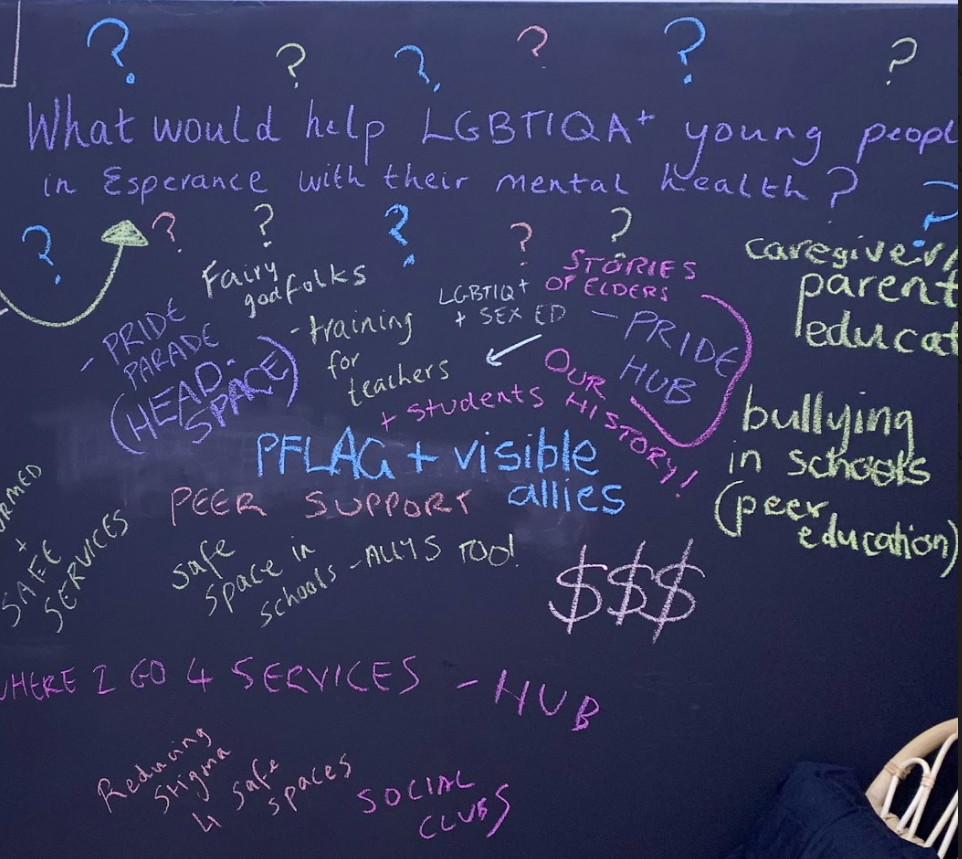 ? ? ? ? ? ?
What would help LGBTIQA+ young peopl
in Esperance with their mental health?
? ? ? ? ? ? ?
Fairy
godfolks
- PRIDE
PARADE
(HEAD-
SPACE)
- training
for
teachers
+ students
LGBTIQ+
+ SEX ED
STORIES
OF ELDERS
- PRIDE
HUB
OUR
HISTORY!
caregiver/
parent
educat
bullying
in schools
(peer
education)
PFLAG + visible
allies
PEER SUPPORT
ORMED
+
SAFE
SERVICES
safe
space in
schools - ALLYS TOO!
$$$
WHERE 2 GO 4 SERVICES - HUB
Reducing
stigma
4 safe
spaces
SOCIAL
CLUBS